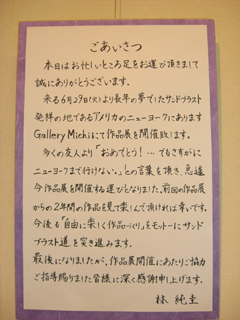 ごあいさつ
本日はお忙しいところ足をお運び頂きまして
誠にありがとうございます。
来る6月29日(火)より長年の夢でしたサンドブラスト
発祥の地であるアメリカのニューヨークにあります
Gallery Michiにて作品展を開催致します。
多くの友人より「おめでとう!…でもさすがに
ニューヨークまで行けない。」との言葉を頂き、急遽
今作品展を開催する運びとなりました。前回の作品展
からの2年間の作品を見て楽しんで頂ければ幸いです。
今後も「自由に楽しく作品づくり」をモットーにサンド
ブラスト道を突き進みます。
最後になりましたが、作品展開催にあたりご協力
ご指導賜りました皆様に深く感謝申し上げます。
林 純圭